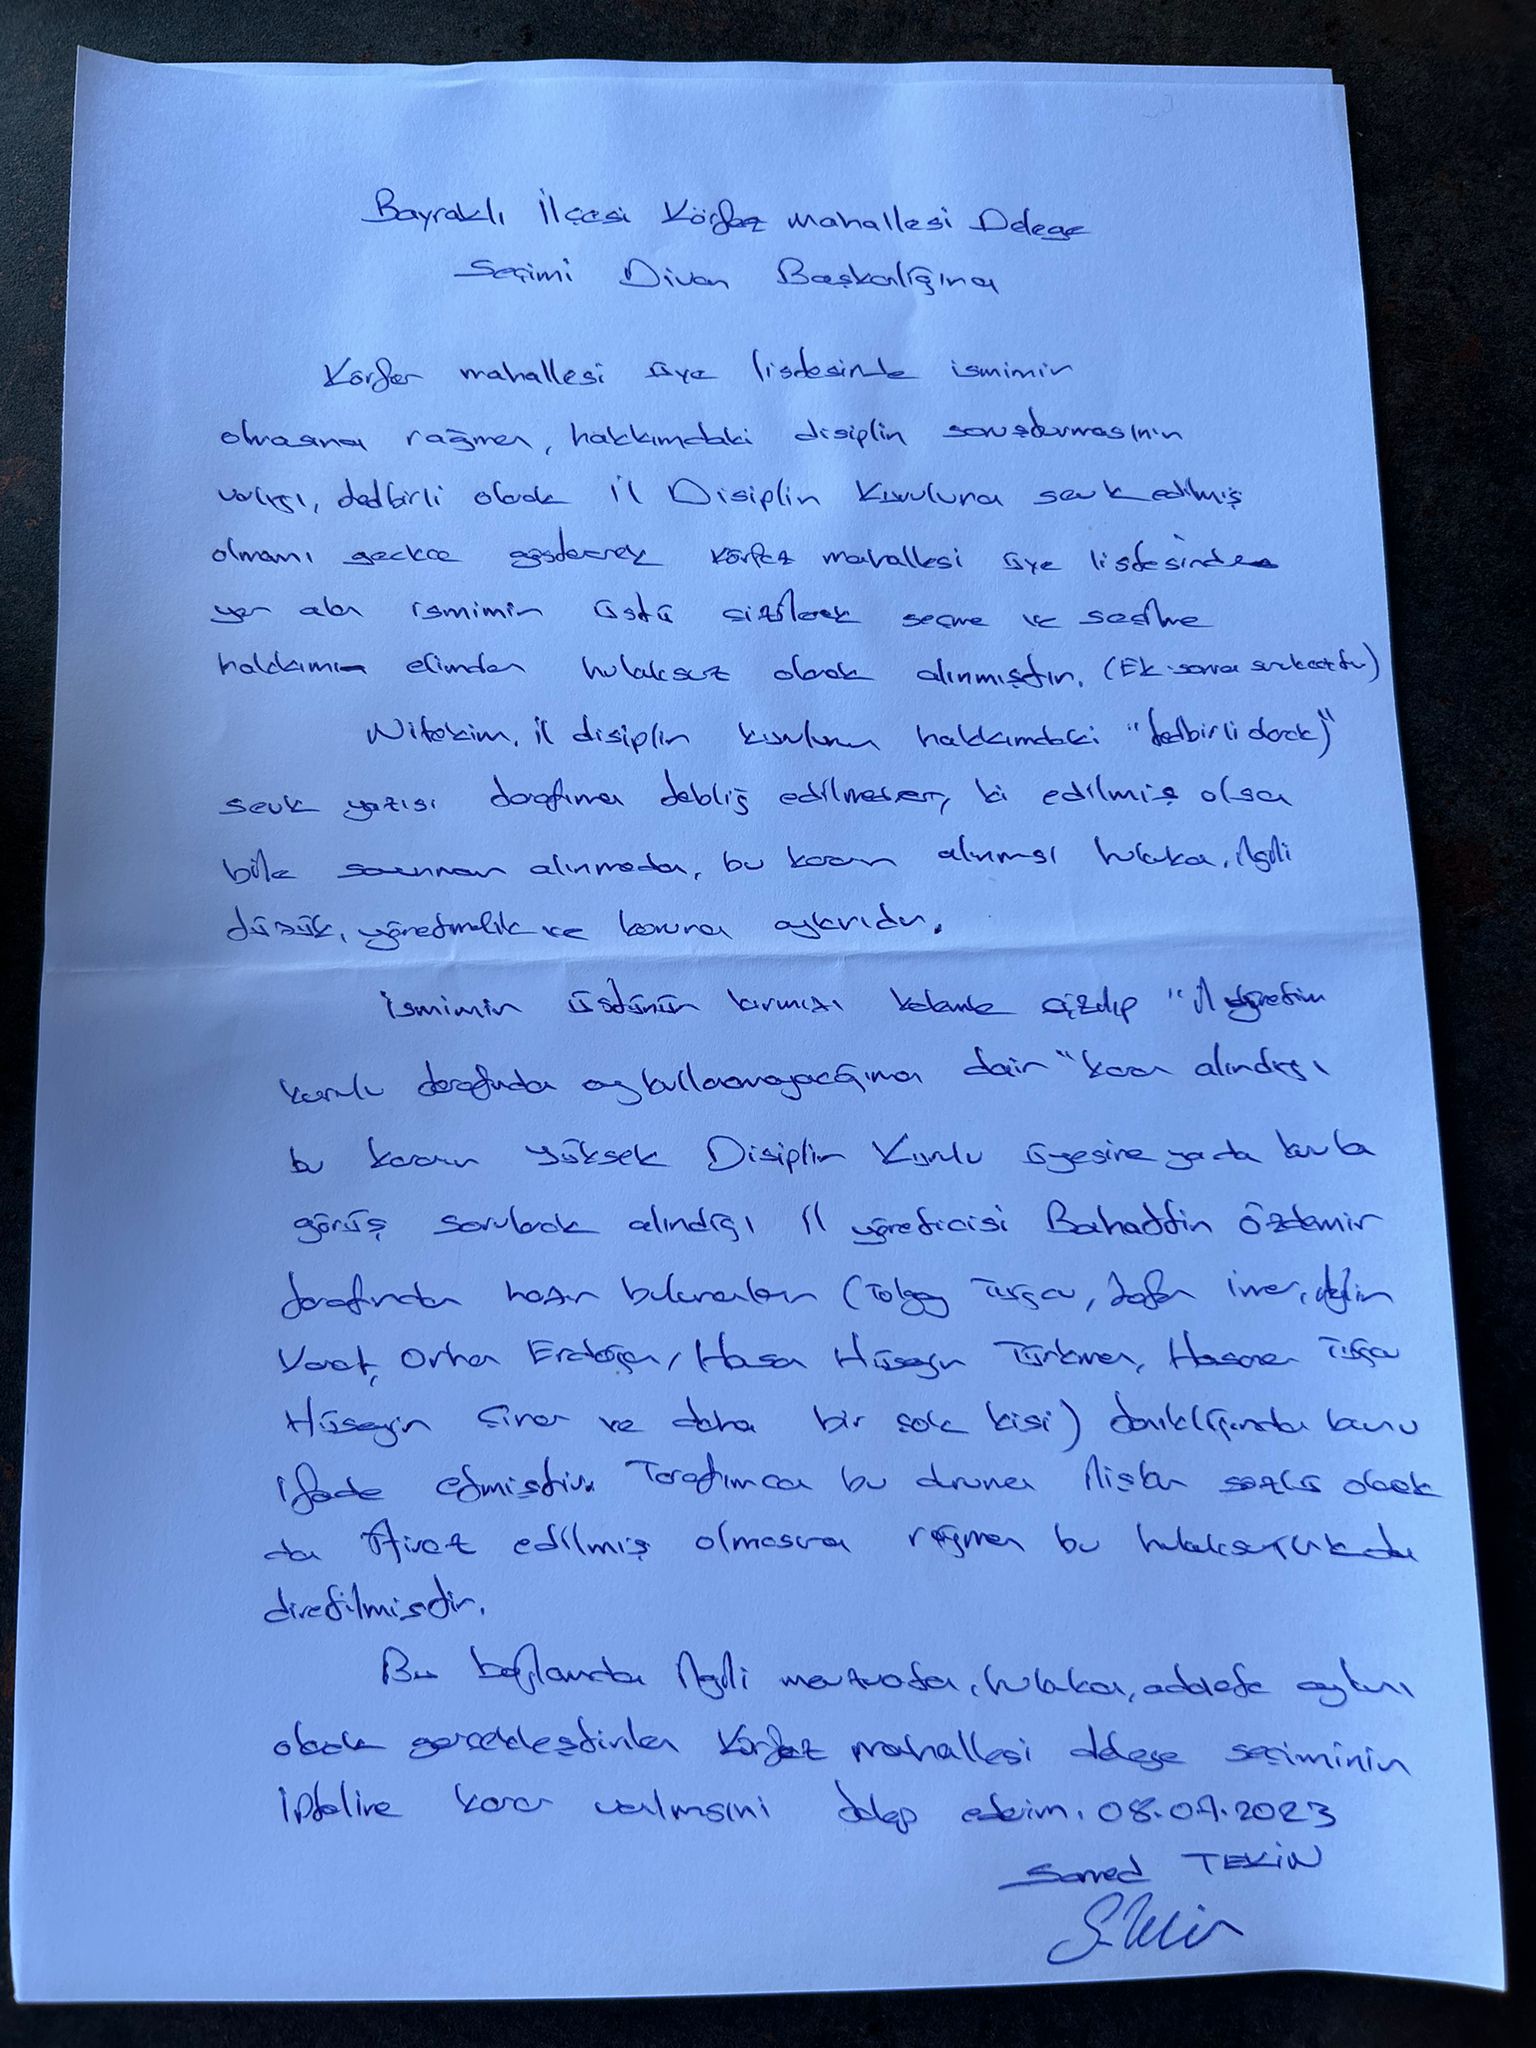 Bayraklı İlçesi Körfez mahallesi Delege
Seçimi Divan Başkanlığına
Körfez mahallesi üye listesinde ismimin
olmasına rağmen, hakkımdaki disiplin soruşturmasının
varlığı, tedbirli olarak İl Disiplin Kuruluna sevk edilmiş
olmamı gerekçe göstererek Körfez mahallesi üye listesinde
yer alan ismimin üstü çizilerek seçme ve seçilme
hakkımın elimden hukuksuz olarak alınmıştır. (Ek
Nitekim, il disiplin kurulunun hakkımdaki "tedbirli olarak"
sevk yazısı tarafıma tebliğ edilmeden, ki edilmiş olsa
bile savunmam alınmadan, bu kararın alınması hukuka, ilgili
tüzük, yönetmelik ve kanuna aykırıdır.
İsmimin üstünün kırmızı kalemle çizilip "İl yönetim
kurulu tarafından oy kullanamayacağıma dair" karar alındığı
bu kararın Yüksek Disiplin Kurulu üyesine ya da kurula
görüş sorularak alındığı İl yöneticisi Bahattin Özdemir
tarafından hazır bulunanların (Tolgay Turgu, Zafer İner,
Orhan Erdoğan, Hasan Hüseyin Türkmen,
Hüseyin Çınar ve daha bir çok kişi) tanıklığında bunu
ifade etmiştir. Tarafımca bu duruma ilişkin sözlü olarak
da itiraz edilmiş olmasına rağmen bu hukuksuzlukda
diretilmiştir.
Bu bağlamda ilgili mevzuata, hukuka, adalete aykırı
olarak gerçekleştirilen Körfez mahallesi delege seçiminin
iptaline karar verilmesini talep ederim. 08.07.2023
Samed TEKİN